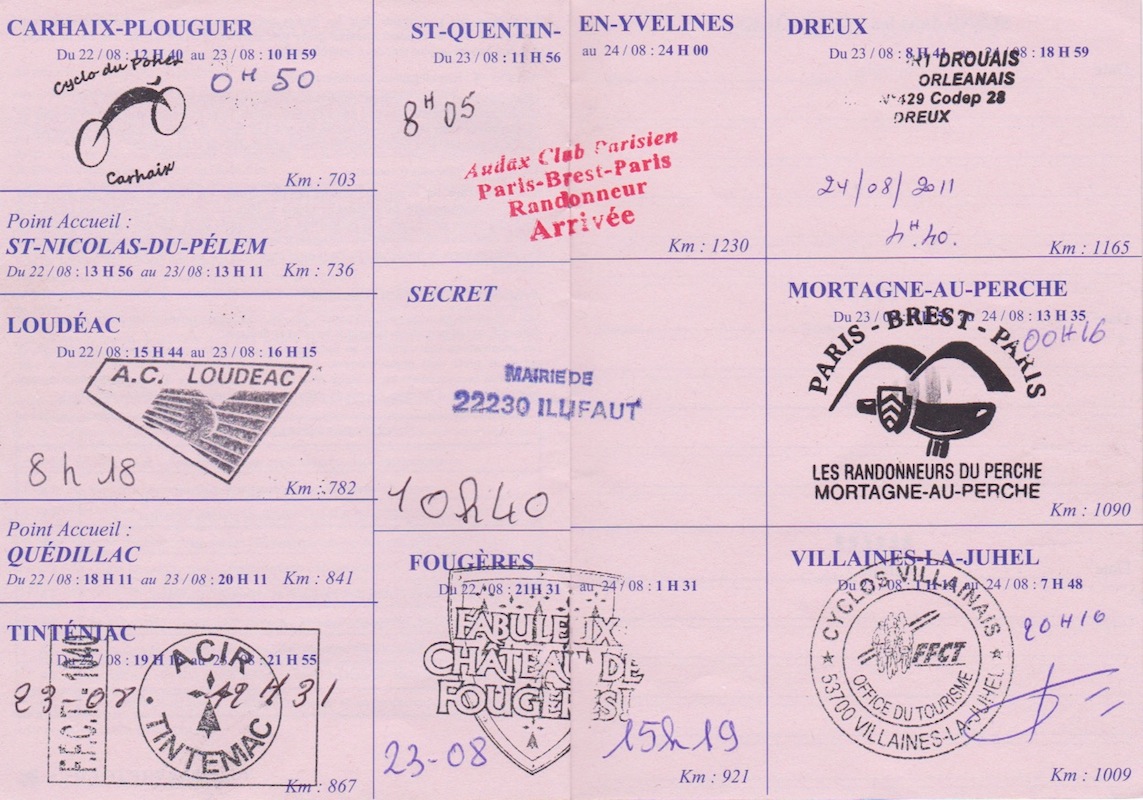 CARHAIX-PLOUGUER
Du 22 / 08 : 12 H 40 au 23 / 08 : 10 H 59
Cyclo du Poher
0H 50
Carhaix
Km : 703
Point Accueil :
ST-NICOLAS-DU-PÉLEM
Du 22 / 08 : 13 H 56 au 23/ 08 : 13 H 11 Km : 736
LOUDÉAC
Du 22 / 08 : 15 H 44 au 23 / 08 : 16 H 15
A.C. LOUDEAC
8 h 18
Km : 782
Point Accueil :
QUÉDILLAC
Du 22 / 08 : 18 H 11 au 23 / 08 : 20 H 11 Km : 841
TINTÉNIAC
Du / 08 : 19 H au / 08 : 21 H 55
F.F.C.T.
ACIR
TINTENIAC
23-08 12 H 31
Km : 867
ST-QUENTIN-EN-YVELINES
Du 23 / 08 : 11 H 56 au 24 / 08 : 24 H 00
8H 05
Audax Club Parisien
Paris-Brest-Paris
Randonneur
Arrivée
Km : 1230
SECRET
MAIRIE DE
22230 ILLIFAUT
10h40
FOUGÈRES
Du 22 / 08 : 21H 31 au 24 / 08 : 1 H 31
FABULEUX
CHÂTEAU DE
FOUGÈRES!
23-08 15h19
Km : 921
DREUX
Du 23 / 08 : 8 H 41 au 24 / 08 : 18 H 59
DROUAIS
ORLEANAIS
N°429 Codep 28
DREUX
24/08/2011
4H40.
Km : 1165
MORTAGNE-AU-PERCHE
Du 23 / 08 : au 24 / 08 : 13 H 35
00H16
PARIS - BREST - PARIS
LES RANDONNEURS DU PERCHE
MORTAGNE-AU-PERCHE
Km : 1090
VILLAINES-LA-JUHEL
Du / 08 : 1 H au 24 / 08 : 7 H 48
CYCLOS VILLAINAIS
20H16
FFCT
OFFICE DU TOURISME
53700 VILLAINES-LA-JUHEL
Km : 1009